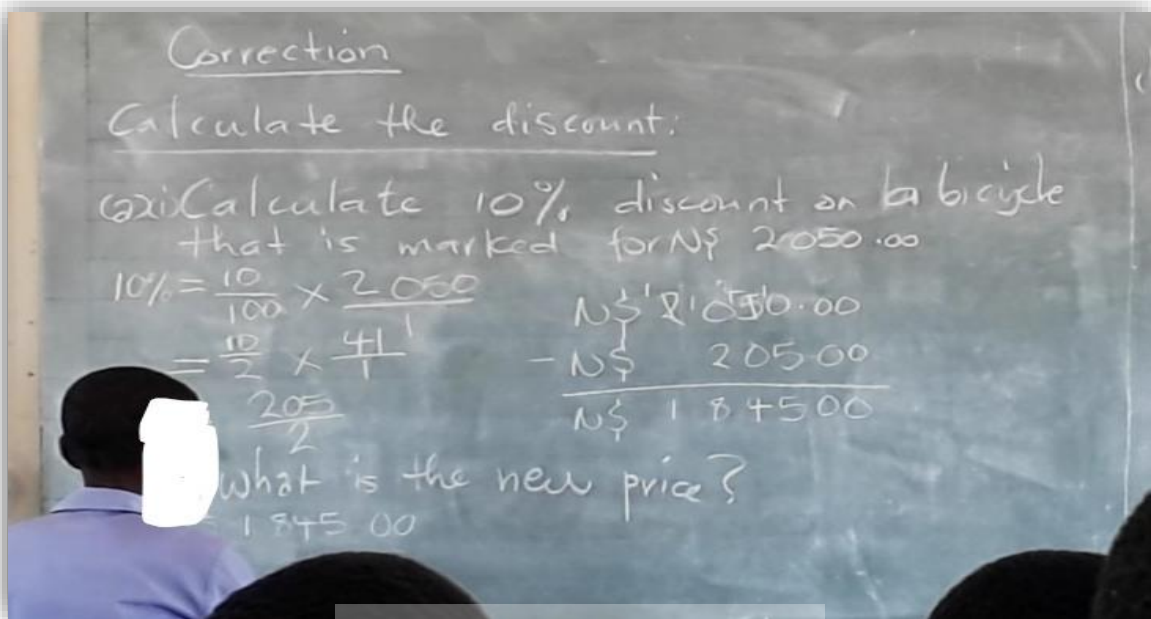 Correction
Calculate the discount:
(a)(i) Calculate 10% discount on a bicycle
that is marked for N$ 2050.00
10% = 10/100 × 2050/1
= 10/2 × 41/1
205/2
N$ 2050.00
- N$ 205.00
N$ 184500
what is the new price?
= 1845 00